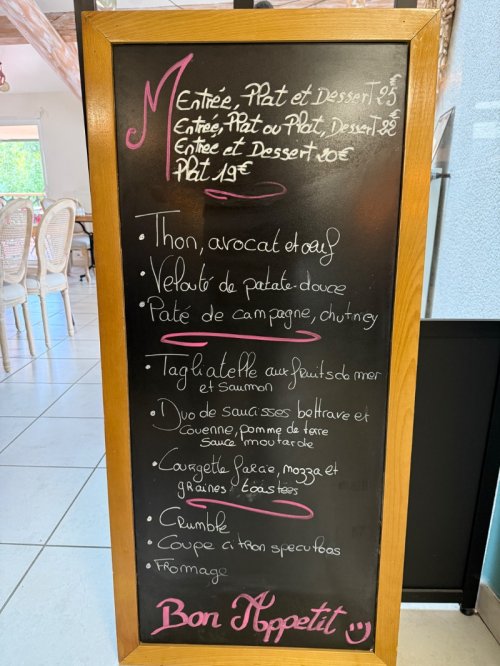 M Entrée, Plat et Dessert 25€
Entrée, Plat ou Plat, Dessert 22€
Entree et Dessert 20€
Plat 19€
• Thon, avocat et oeuf
• Velouté de patate-douce
• Paté de campagne, chutney
• Tagliatelle aux fruits de mer
et saumon
• Duo de saucisses bettrave et
couenne, pomme de terre
sauce moutarde
• Courgette farcie, mozza et
graines toastées
• Crumble
• Coupe citron speculoos
• Fromage
Bon Appetit